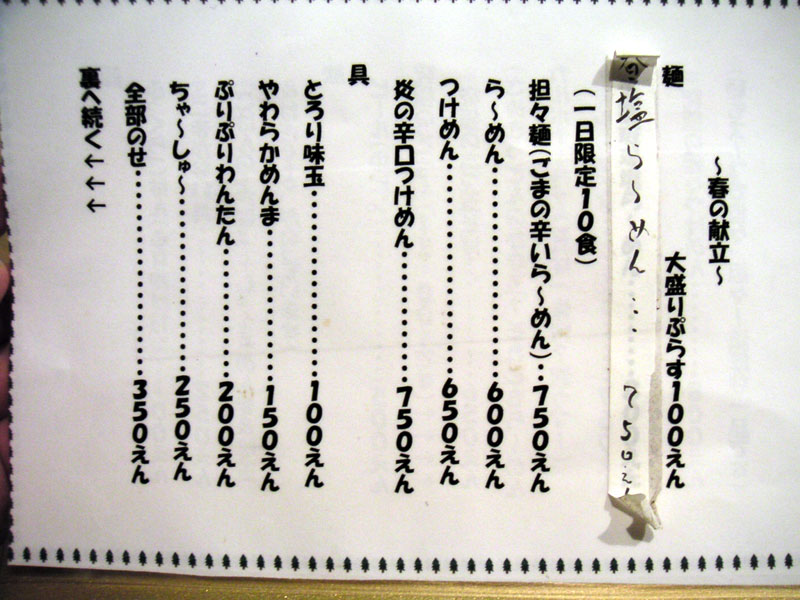 ～春の献立～
麺　大盛りぷらす100えん
塩ら～めん・・・750えん
(一日限定10食)
担々麺(ごまの辛いら～めん)・・750えん
ら～めん・・・・・・・・・・・・・・600えん
つけめん・・・・・・・・・・・・・・650えん
炎の辛口つけめん・・・・・・・・・750えん
具
とろり味玉・・・・・・・・・・・・・100えん
やわらかめんま・・・・・・・・・・150えん
ぷりぷりわんたん・・・・・・・・・200えん
ちゃ～しゅ～・・・・・・・・・・・・250えん
全部のせ・・・・・・・・・・・・・・350えん
裏へ続く←←←